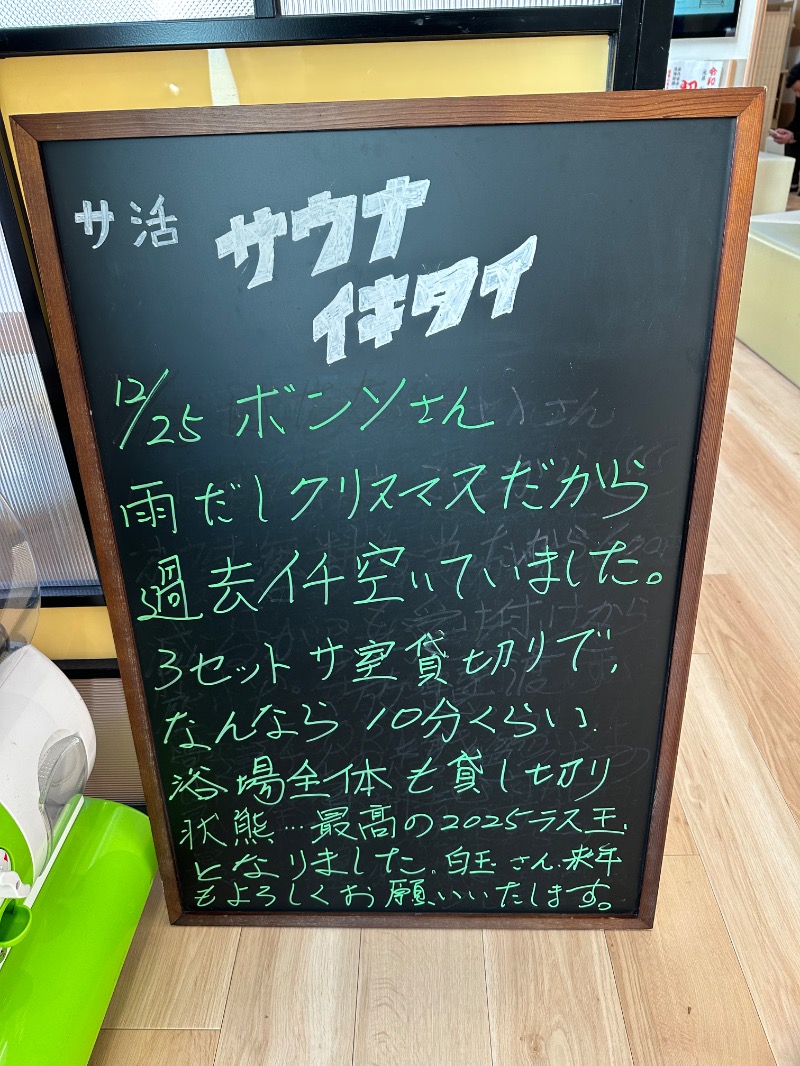 令和
サ活
サウナ
イキタイ
12/25 ボンソさん
雨だしクリスマスだから
過去イチ空いていました。
3セットサ室貸切りで、
なんなら10分くらい
浴場全体も貸し切り
状態…最高の2025ラス玉、
となりました。白玉さん来年
もよろしくお願いいたします。